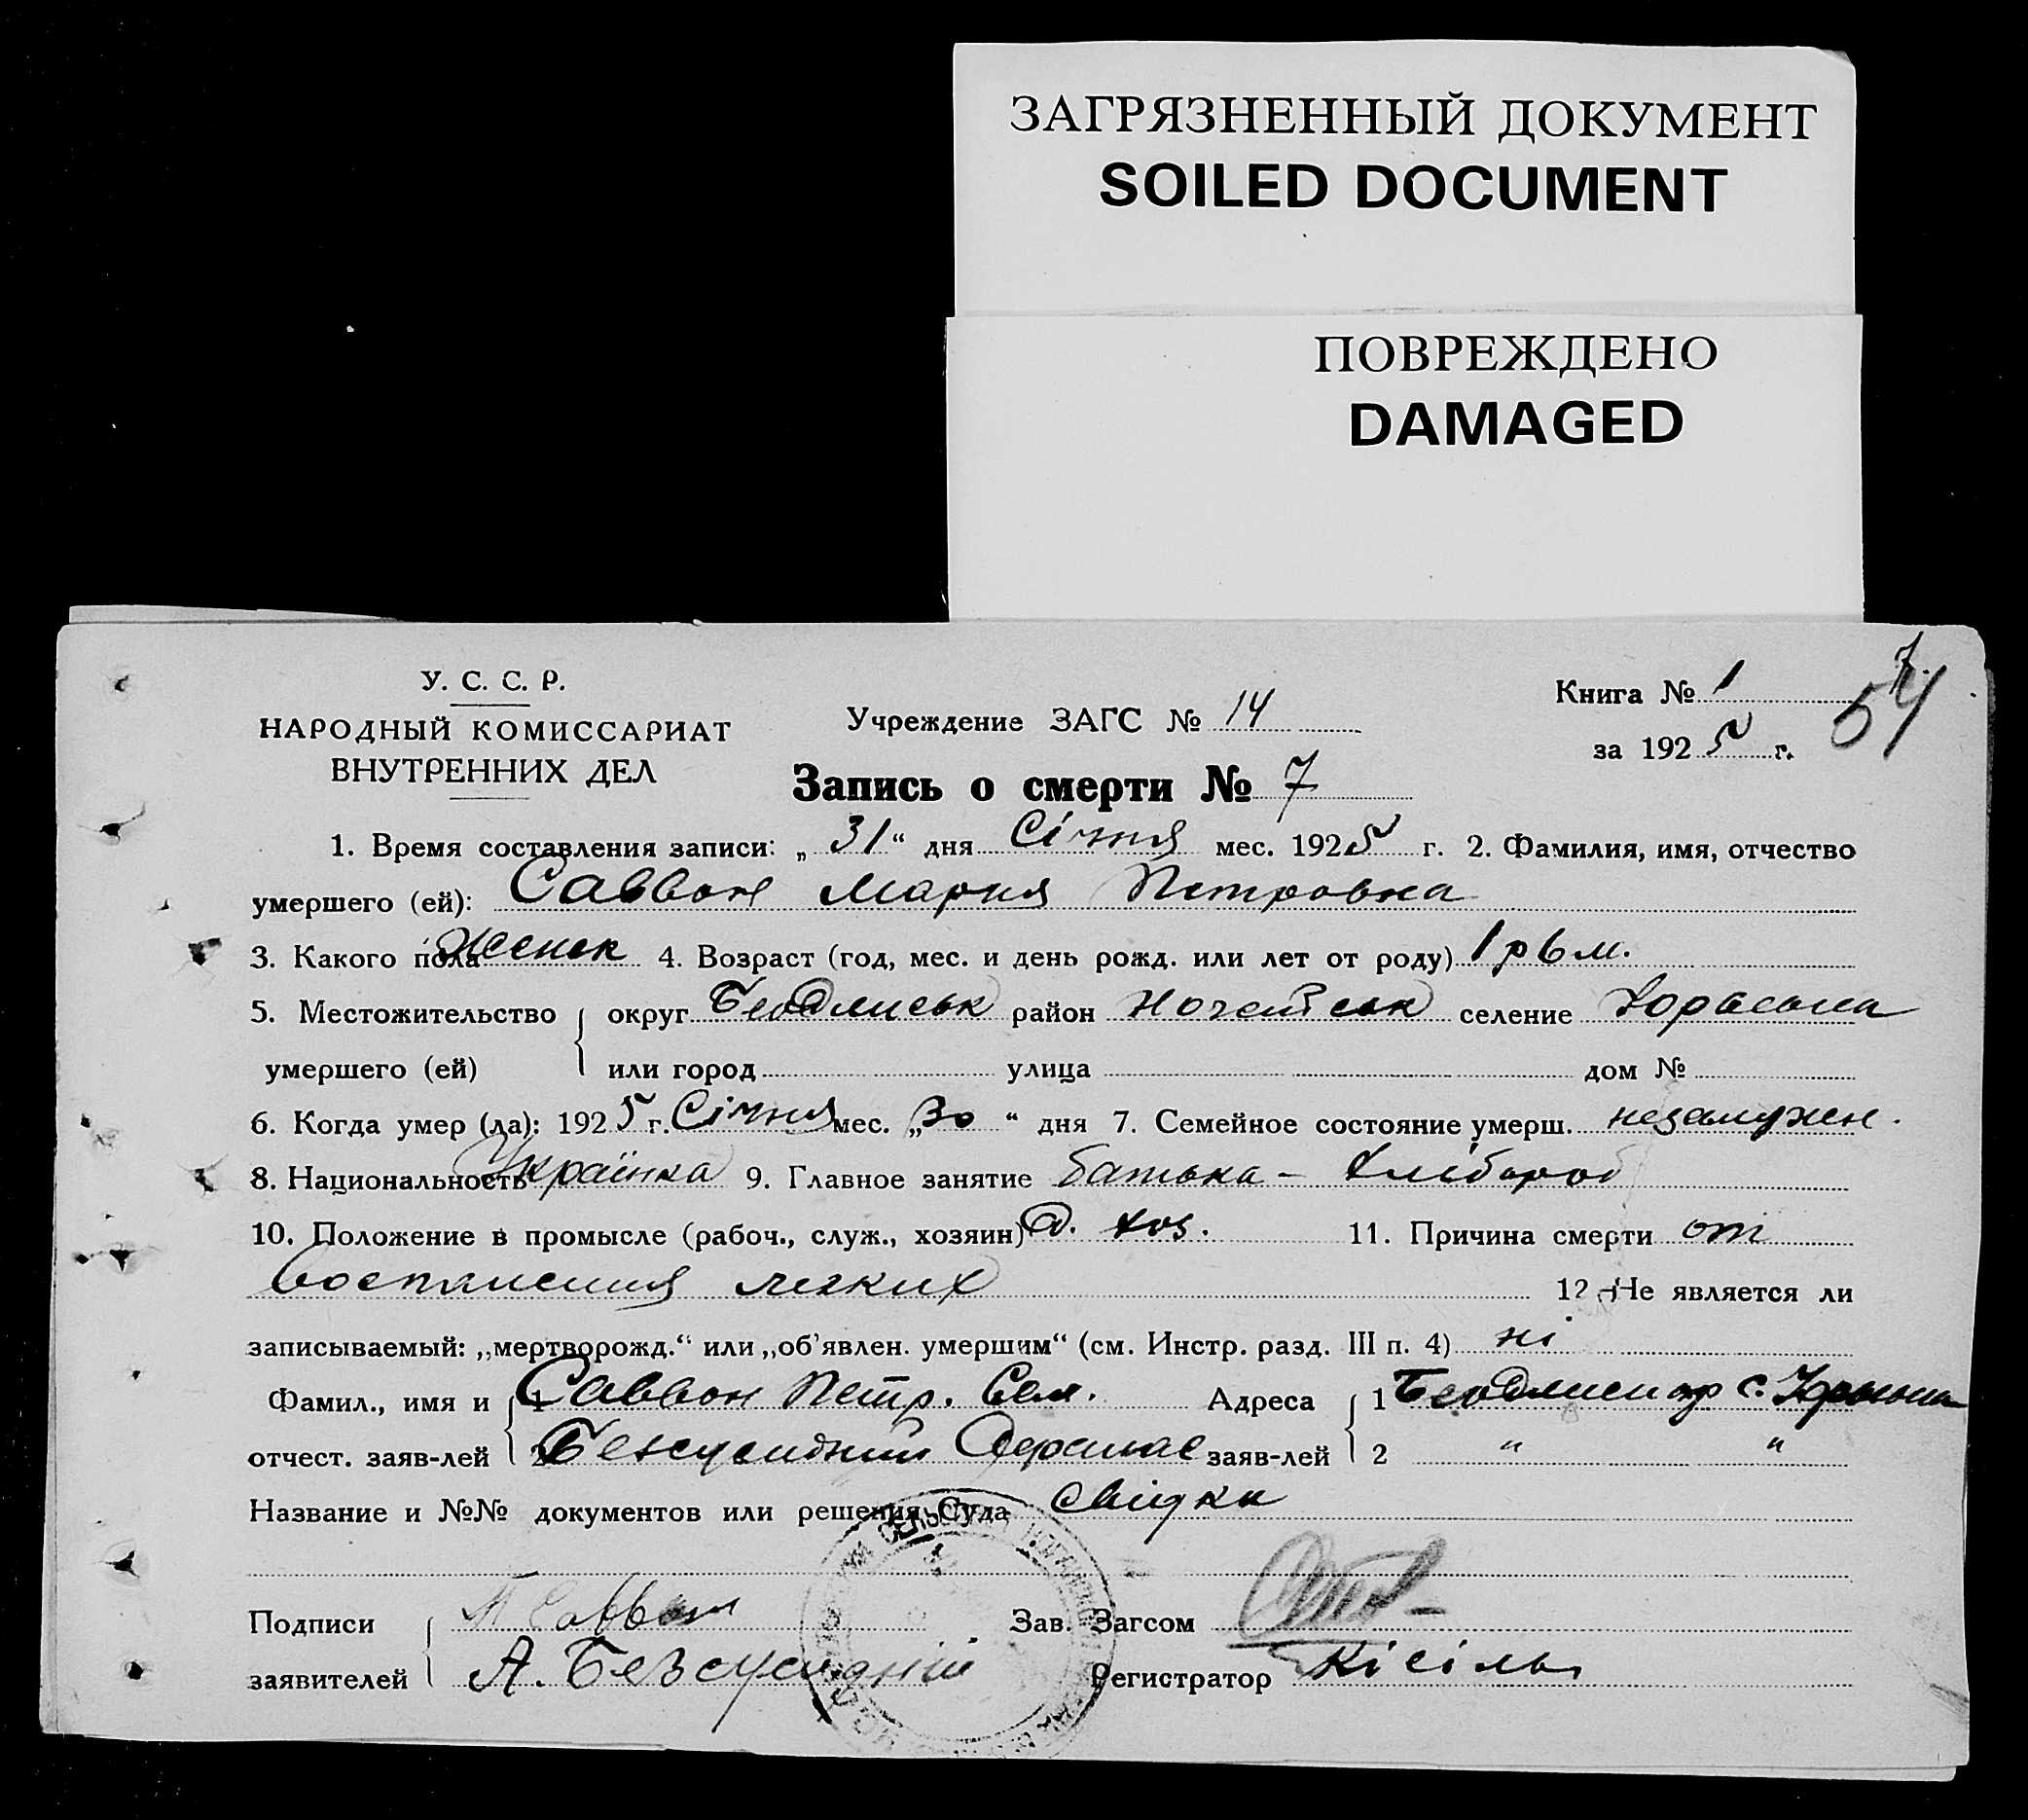 ЗАГРЯЗНЕННЫЙ ДОКУМЕНТ
SOILED DOCUMENT
ПОВРЕЖДЕНО
DAMAGED
У. С. С. Р.
НАРОДНЫЙ КОМИССАРИАТ
ВНУТРЕННИХ ДЕЛ
Учреждение ЗАГС № 14
Книга № 1
7.
54
за 1925 г.
Запись о смерти № 7
1. Время составления записи: „31“ дня Січня мес. 1925 г. 2. Фамилия, имя, отчество
умершего (ей): Саввон Мария Петровна
3. Какого пола Женск 4. Возраст (год, мес. и день рожд. или лет от роду) 1 р 6 м.
5. Местожительство округ район селение
умершего (ей) или город улица дом №
6. Когда умер (ла): 1925 г. Січня мес. „30“ дня 7. Семейное состояние умерш. незамужен.
8. Национальность Українка 9. Главное занятие батька – хлібороб
10. Положение в промысле (рабоч., служ., хозяин) хоз. 11. Причина смерти от
воспаления легких 12. Не является ли
записываемый: „мертворожд.“ или „об'явлен. умершим“ (см. Инстр. разд. III п. 4) ні
Фамил., имя и 1 Саввон Петр. Адреса 1 с.
отчест. заяв-лей 2 заяв-лей 2 " "
Название и №№ документов или решения Суда свідки
Подписи П Саввон Зав. Загсом
заявителей А. Регистратор Кісіль